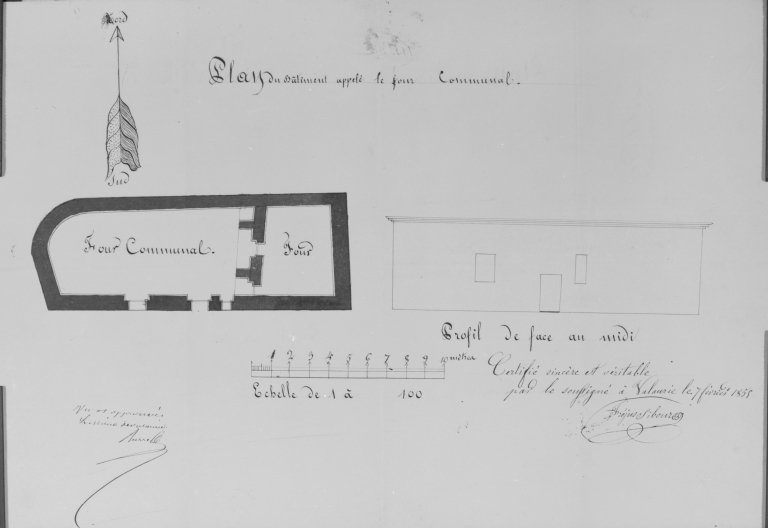 Nord
Plan du Bâtiment appelé le four Communal.
Sud
Four Communal.
Four
Profil de face au midi
1 2 3 4 5 6 7 8 9 10 mètres
Echelle de 1 à 100
Certifié sincère et véritable
par le soussigné à Valaurie le 7 février 1855
Vu et approuvé